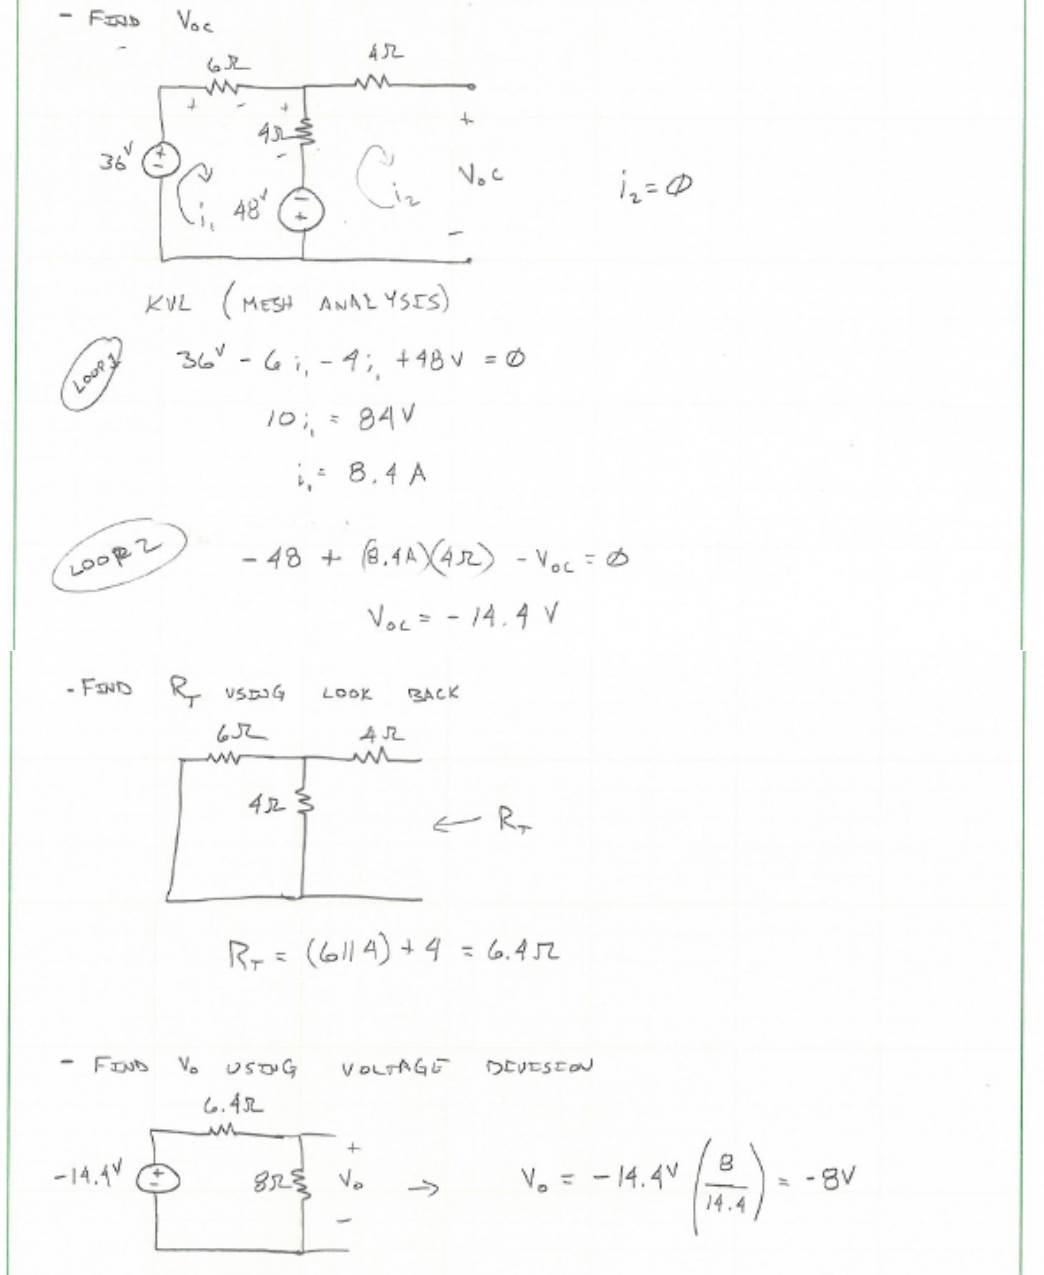 - FIND Voc
6Ω 4Ω
+ - + +
4Ω
-
36V + - Voc i₂ = ∅
i₁ 48V - + i₂
-
KVL (MESH ANALYSIS)
LOOP 1 36V - 6i₁ - 4i₁ + 48V = ∅
10i₁ = 84V
i₁ = 8.4 A
LOOP 2 -48 + (8.4A)(4Ω) - Voc = ∅
Voc = -14.4 V
- FIND R_T USING LOOK BACK
6Ω 4Ω
4Ω
← R_T
R_T = (6||4) + 4 = 6.4Ω
- FIND V₀ USING VOLTAGE DIVISION
6.4Ω
+
-14.4V + - 8Ω V₀ → V₀ = -14.4V (8/14.4) = -8V
-